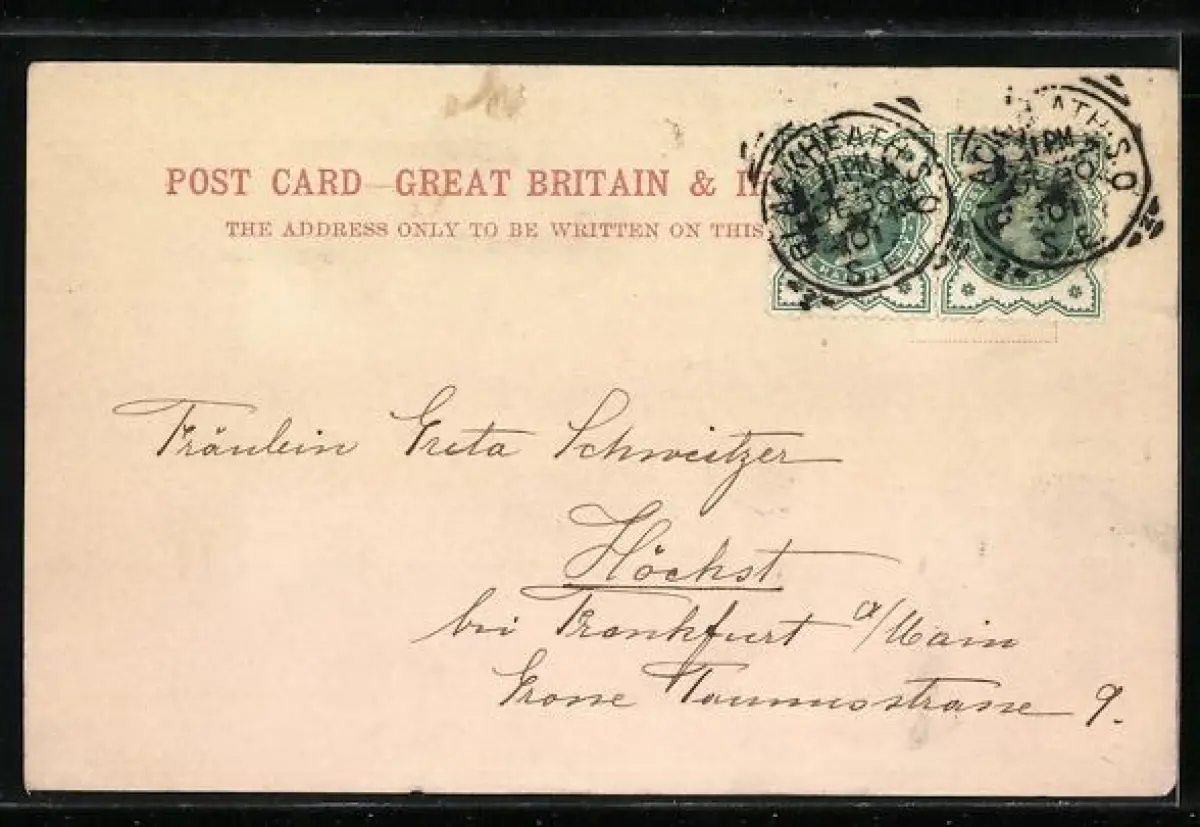 POST CARD—GREAT BRITAIN &
THE ADDRESS ONLY TO BE WRITTEN ON THIS
BLACKHEATH S.O
11 PM
DE 30
01
S.E.
11 PM
01
S.E.
HALFPENNY
Fräulein Greta Schweitzer
Höchst
bei Frankfurt a/Main
Grosse Taunusstrasse 9.